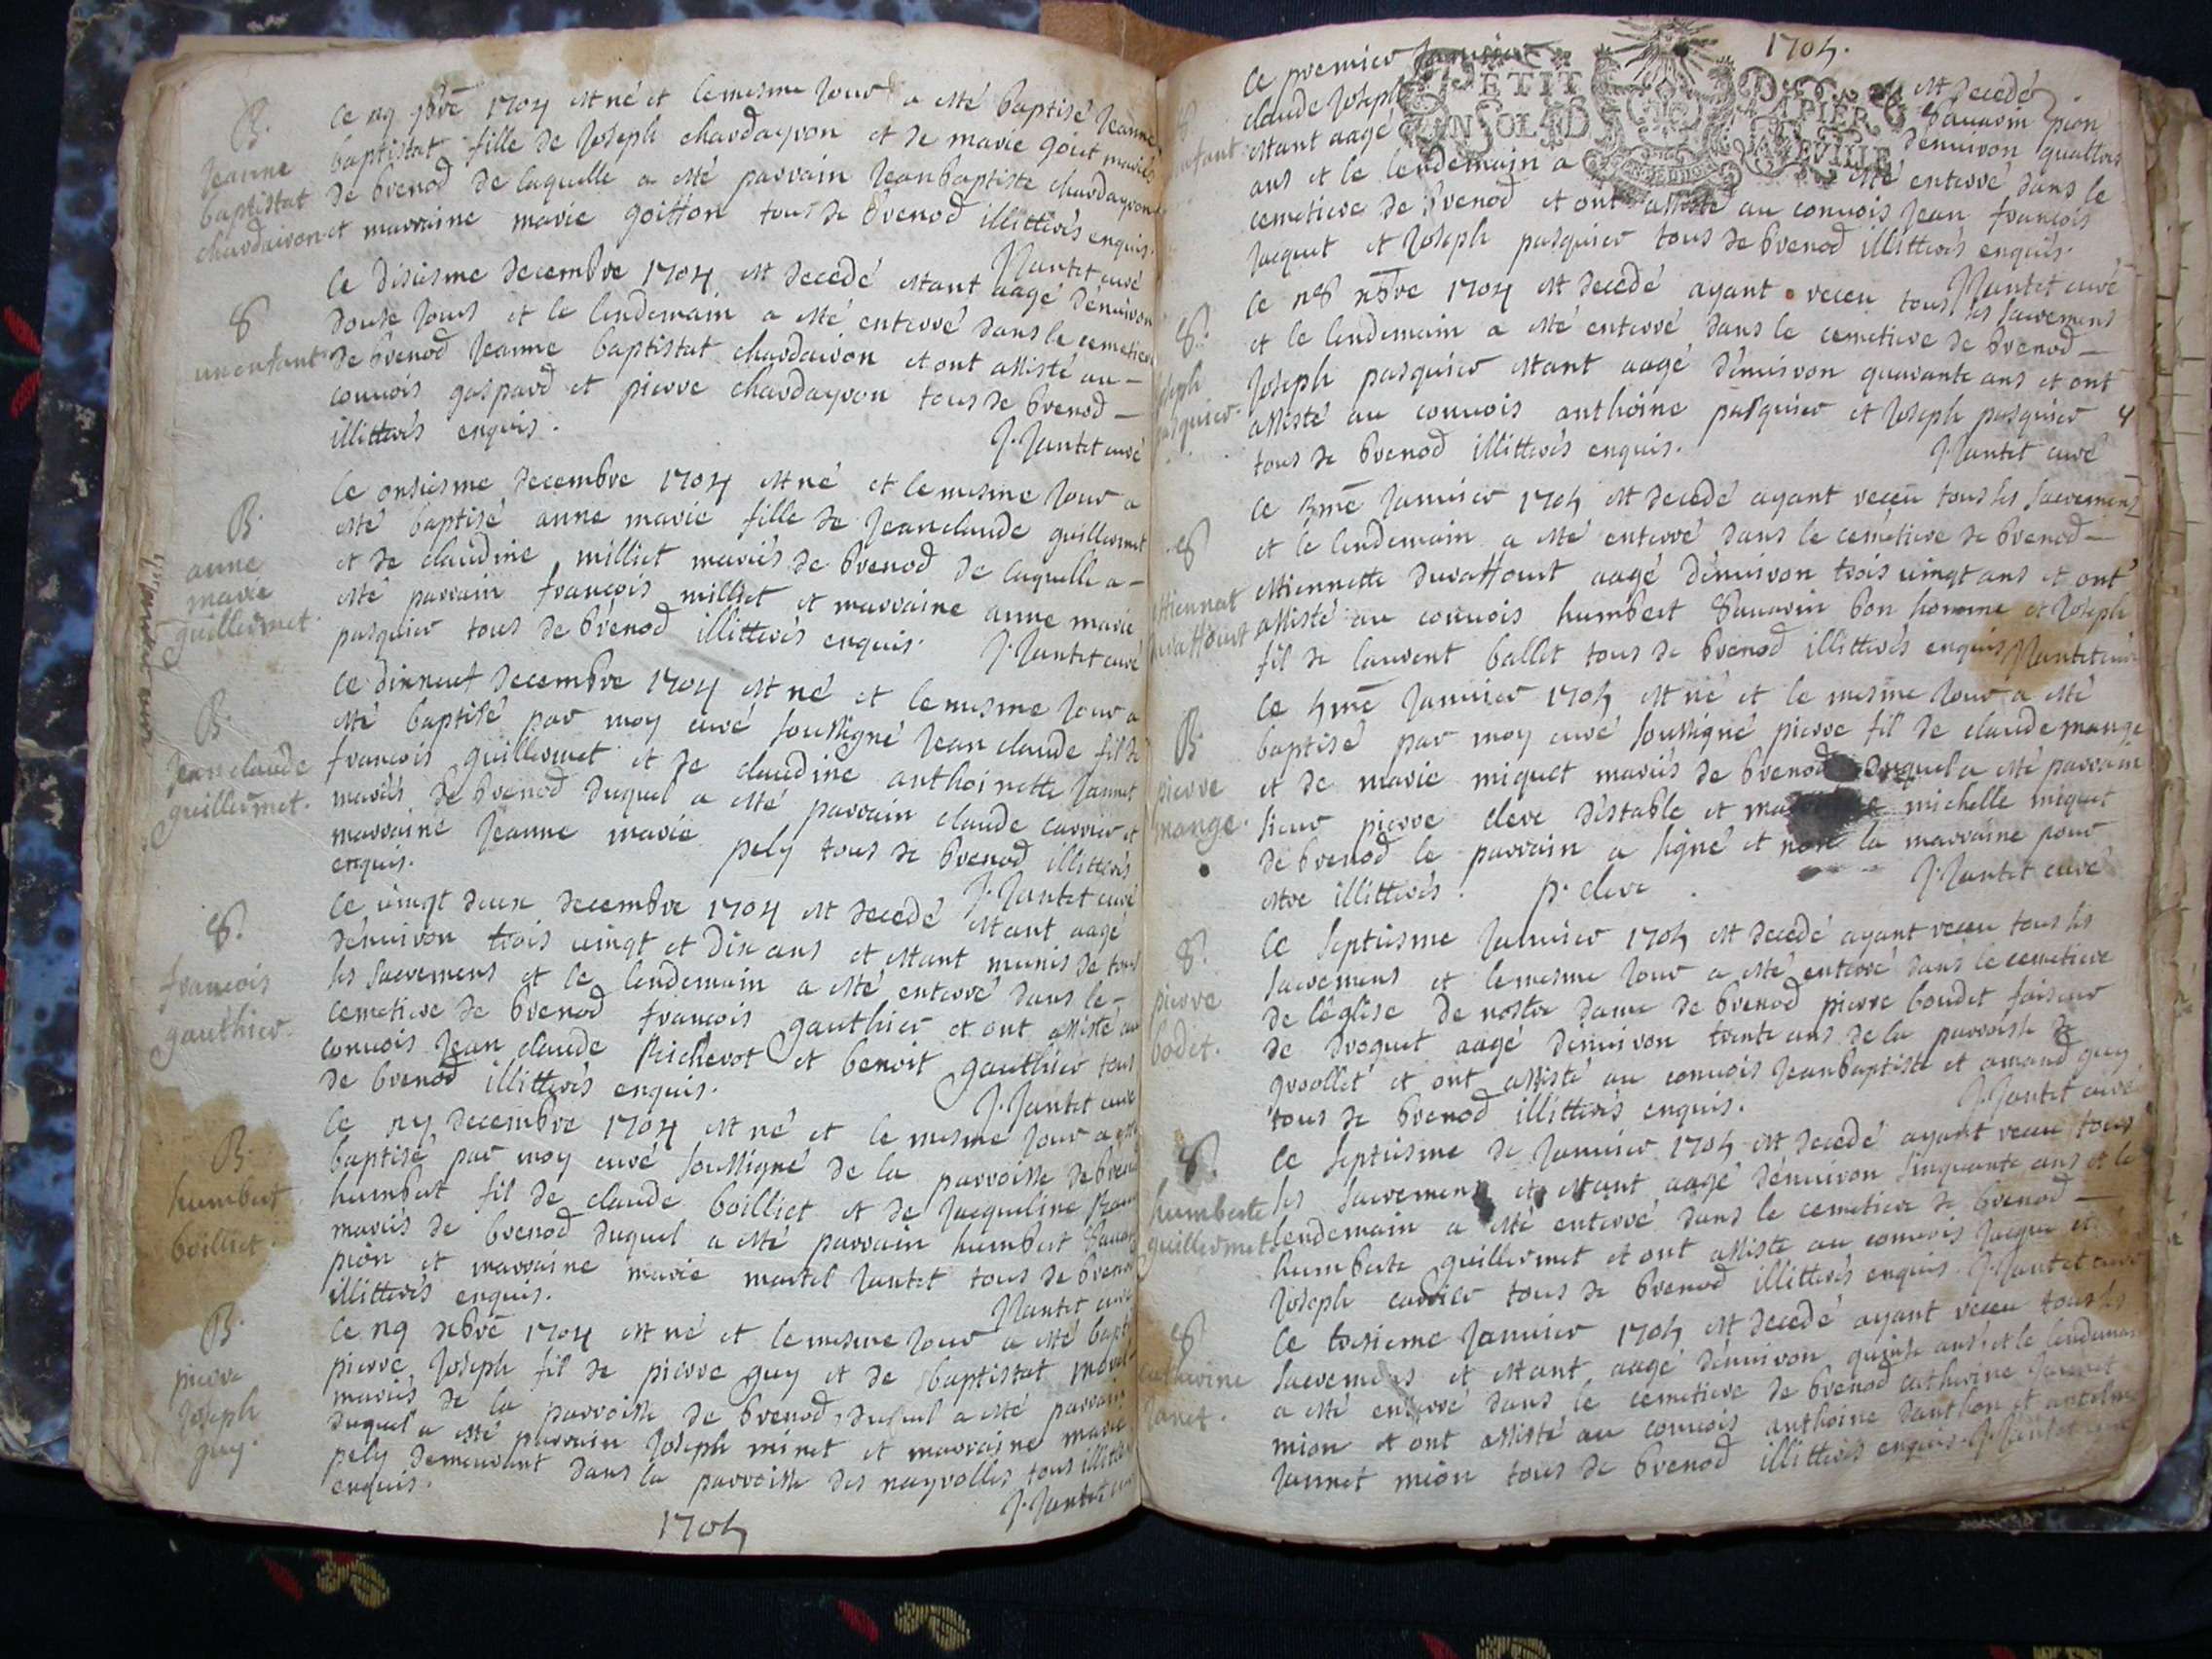 B.
Jeanne
baptistat
chardairon
Ce 29 9bre 1704 est né et le mesme Jour a esté baptisé Jeanne
baptistat fille de Joseph chardayron et de marie goit mariés
de brenod de laquelle a esté parrain Jean baptiste chardayron
et marraine marie goitton tous de brenod illitterés enquis.
J Jantet curé
8
un enfant
Ce disiesme decembre 1704 est decedé estant aagé d'enuiron
douse Jours et le lendemain a esté enterré dans le cemetiere
de brenod Jeanne baptistat chardairon et ont assisté au -
conuois gaspard et pierre chardayron tous de brenod -
illitterés enquis.
J. Jantet curé
B.
anne
marie
guillermet.
Ce onsiesme decembre 1704 est né et le mesme Jour a
esté baptisé anne marie fille de Jean claude guillermet
et de claudine milliet mariés de brenod de laquelle a -
esté parrain françois milliet et marraine anne marie
pasquier tous de brenod illitterés enquis. J. Jantet curé
B.
Jean claude
guillermet.
Ce dixneuf decembre 1704 est né et le mesme Jour a
esté baptisé par moy curé soussigné Jean claude fil de
françois guillermet et de claudine anthoinette Jannet
mariés de brenod duquel a esté parrain claude carrier et
marraine Jeanne marie pely tous de brenod illitterés
enquis.
J. Jantet curé
8.
francois
gauthier.
Ce uingt deux decembre 1704 est decedé estant aagé
d'enuiron trois uingt et dix ans et estant munis de tous
les sacremens et le lendemain a esté enterré dans le -
cemetiere de brenod françois gauthier et ont assisté au
conuois Jean claude Richerot et benoit gauthier tous
de brenod illitterés enquis.
J. Jantet curé
B.
humbert
boilliet.
Ce decembre 1704 est né et le mesme Jour a esté
baptisé par moy curé soussigné de la parroisse de brenod
humbert fil de claude boilliet et de Jacqueline
mariés de brenod duquel a esté parrain humbert
pion et marraine marie martel Jantet tous de brenod
illitterés enquis.
J Jantet curé
B.
pierre
Joseph
guy.
Ce 29 xbre 1704 est né et le mesme Jour a esté bapt
pierre Joseph fil de pierre guy et de baptistat
mariés de la parroisse de brenod, duquel a esté parrain
duquel a esté parrain Joseph minet et marraine marie
pely demeurant dans la parroisse des neyrolles tous
enquis.
J. Jantet
1705
1705.
PETIT PAPIER
UN SOL 4 D
enfant
Ce premier Januier est decedé
claude Joseph Sauarin pion
estant aagé d'enuiron quattres
ans et le lendemain a esté enterré dans le
cemetiere de brenod et ont assisté au conuois Jean françois
Jacquet et Joseph pasquier tous de brenod illitterés enquis.
J Jantet curé
8.
Joseph
pasquier.
Ce 28 xbre 1704 est decedé ayant receu tous les sacremens
et le lendemain a esté enterré dans le cemetiere de brenod -
Joseph pasquier estant aagé d'enuiron quarante ans et ont
assisté au conuois anthoine pasquier et Joseph pasquier
tous de brenod illitterés enquis.
J Jantet curé
8
Ce 3me Januier 1705 est decedé ayant receu tous les sacremens
et le lendemain a esté enterré dans le cemetiere de brenod -
estiennette aagé d'enuiron trois uingt ans et ont
assisté au conuois humbert Sauarin bon homme et Joseph
fil de laurent ballet tous de brenod illitterés enquis J Jantet curé
B.
pierre
mange.
Ce 5me Januier 1705 est né et le mesme Jour a esté
baptisé par moy curé soussigné pierre fil de claude mange
et de marie miquet mariés de brenod duquel a esté parrain
sieur pierre clere et michelle miquet
de brenod le parrain a signé et non la marraine pour
estre illitterés. p. clere.
J. Jantet curé
8.
pierre
bodet.
Ce septiesme Januier 1705 est decedé ayant receu tous les
sacremens et le mesme Jour a esté enterré dans le cemetiere
de l'eglise de nostre dame de brenod pierre boudet faiseur
de droguet aagé d'enuiron trente ans de la parroisse de
et ont assisté au conuois Jean baptiste et amand guy
tous de brenod illitterés enquis.
J. Jantet curé
8.
humberte
guillermet
Ce septiesme de Januier 1705 est decedé ayant receu tous
les sacremens et estant aagé d'enuiron sinquante ans et le
lendemain a esté enterré dans le cemetiere de brenod -
humberte guillermet et ont assisté au conuois Jacque et
Joseph carrier tous de brenod illitterés enquis. J. Jantet curé
8
catherine
Janet.
Ce Januier 1705 est decedé ayant receu tous les
sacremens et estant aagé d'enuiron quinse ans et le lendemain
a esté enterré dans le cemetiere de brenod catherine Jannet
mion et ont assisté au conuois anthoine et anselme
Jannet mion tous de brenod illitterés enquis. J. Jantet curé